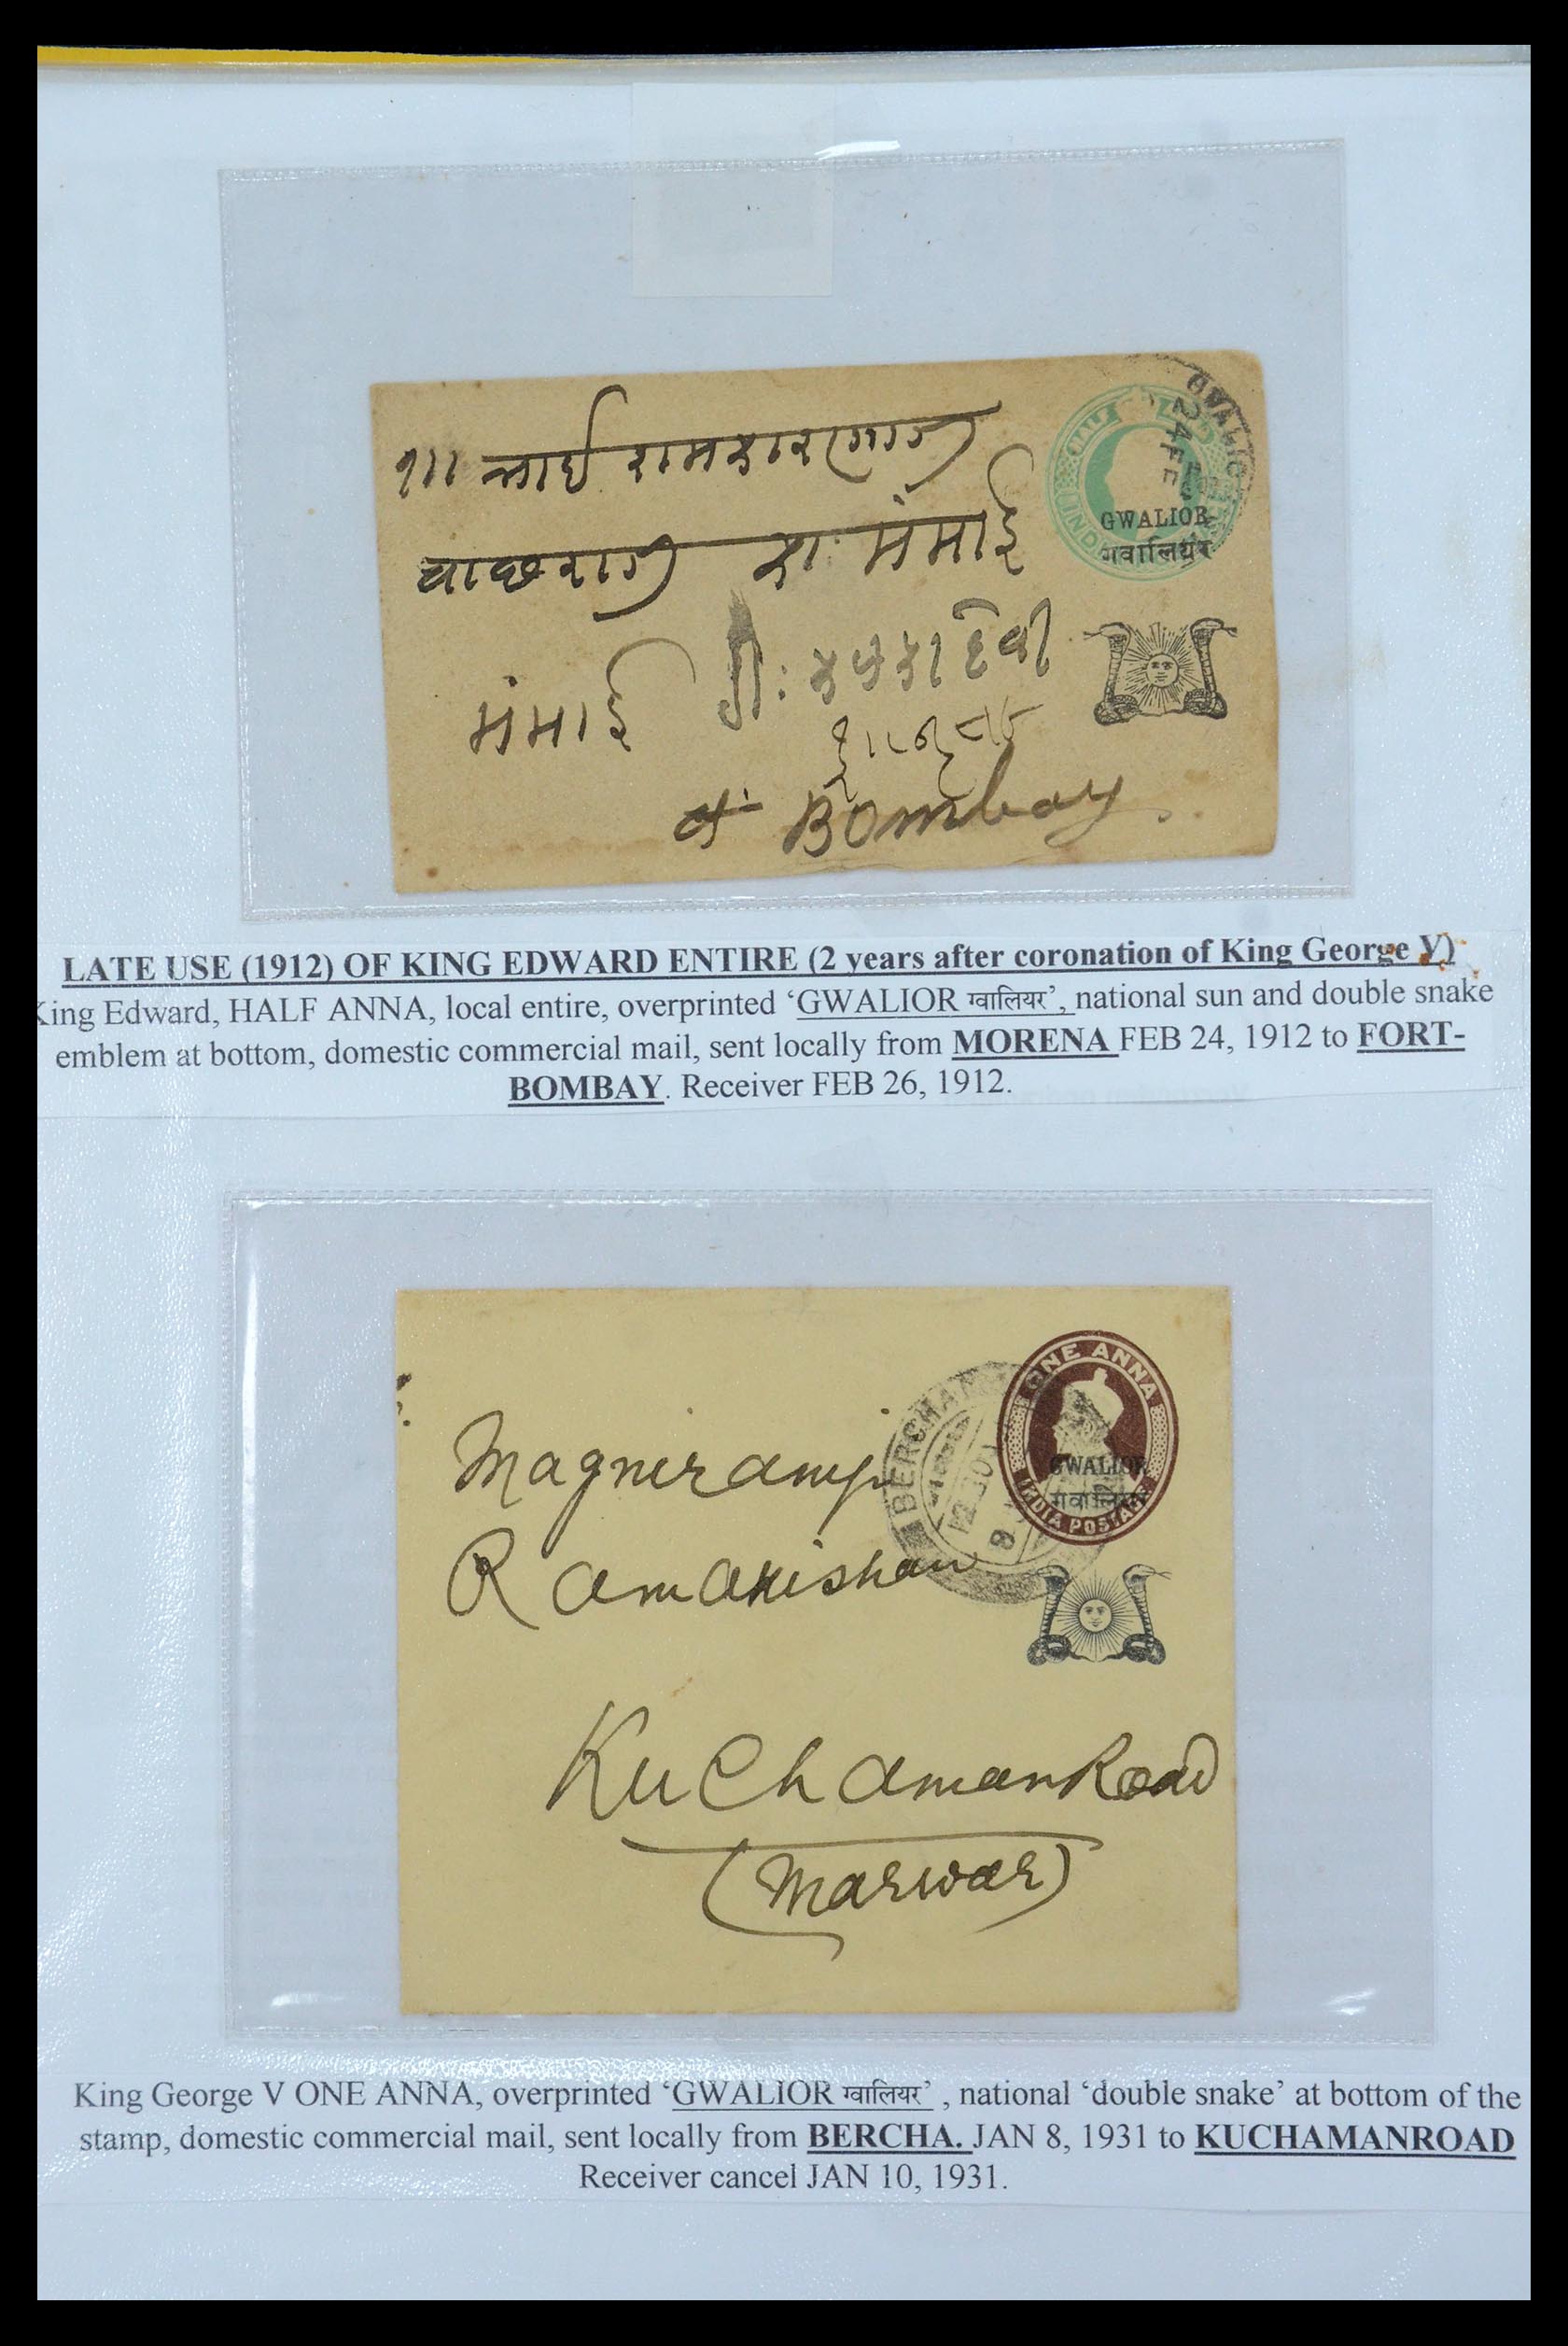 HALF
INDIA
GWALIOR
24 FE
GWALIOR
गवालियर
मंमाई
मंमाई
Bombay
LATE USE (1912) OF KING EDWARD ENTIRE (2 years after coronation of King George V)
King Edward, HALF ANNA, local entire, overprinted ‘GWALIOR ग्वालियर’, national sun and double snake
emblem at bottom, domestic commercial mail, sent locally from MORENA FEB 24, 1912 to FORT-
BOMBAY. Receiver FEB 26, 1912.
ONE ANNA
INDIA POSTAGE
GWALIOR
गवालियर
BERCHA
Magniramji
Ramakishan
KuChamanRoad
(Marwar)
King George V ONE ANNA, overprinted ‘GWALIOR ग्वालियर’ , national ‘double snake’ at bottom of the
stamp, domestic commercial mail, sent locally from BERCHA. JAN 8, 1931 to KUCHAMANROAD
Receiver cancel JAN 10, 1931.